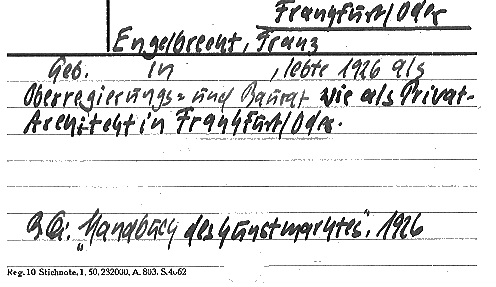 Frankfurt/Oder
Engelbrecht, Franz
Geb. in , lebte 1926 als
Oberregierungs= und Baurat wie als Privat-
Architekt in Frankfurt/Oder.
BQ: "Handbuch des Kunstmarktes", 1926
Reg. 10 Stichnote, 1, 50, 232000, A. 803. S. 4062